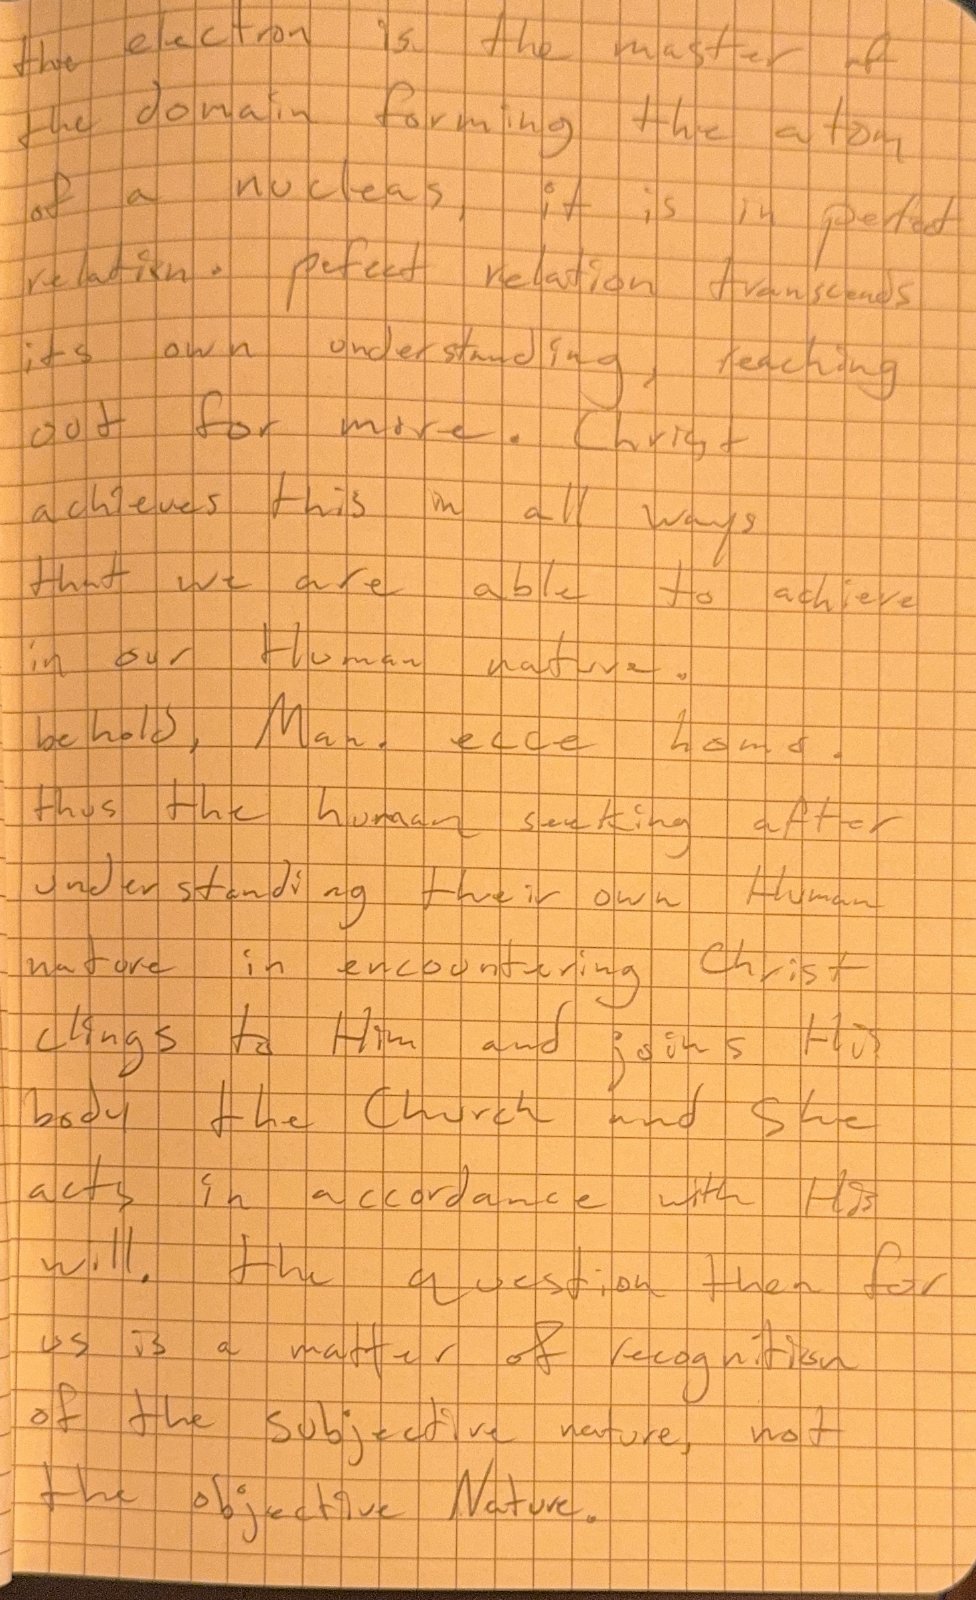 the electron is the master of
the domain forming the atom
of a nucleas, it is in perfect
relation. pefect relation transcends
its own understanding, reaching
out for more. Christ
achieves this in all ways
that we are able to achieve
in our Human nature.
behold, Man. ecce homo.
thus the human seeking after
understanding their own Human
nature in encountering Christ
clings to Him and joins His
body the Church and She
acts in accordance with His
will. the question then for
us is a matter of recognition
of the subjective nature, not
the objective Nature.